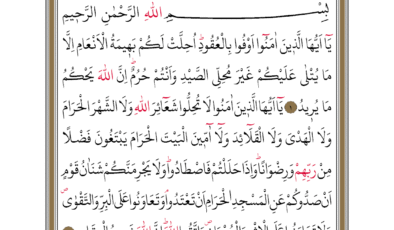 بِسْمِ اللهِ الرَّحْمٰنِ الرَّحِيمِ
يَٓا اَيُّهَا الَّذِينَ اٰمَنُٓوا اَوْفُوا بِالْعُقُودِۜ اُحِلَّتْ لَكُمْ بَهِيمَةُ الْاَنْعَامِ اِلَّا
مَا يُتْلٰى عَلَيْكُمْ غَيْرَ مُحِلِّي الصَّيْدِ وَاَنْتُمْ حُرُمٌۜ اِنَّ اللهَ يَحْكُمُ
مَا يُرِيدُ ١ يَٓا اَيُّهَا الَّذِينَ اٰمَنُوا لَا تُحِلُّوا شَعَٓائِرَ اللهِ وَلَا الشَّهْرَ الْحَرَامَ
وَلَا الْهَدْيَ وَلَا الْقَلَٓائِدَ وَلَٓا اٰمِّينَ الْبَيْتَ الْحَرَامَ يَبْتَغُونَ فَضْلًا
مِنْ رَبِّهِمْ وَرِضْوَانًاۜ وَاِذَا حَلَلْتُمْ فَاصْطَادُواۜ وَلَا يَجْرِمَنَّكُمْ شَنَاٰنُ قَوْمٍ
اَنْ صَدُّوكُمْ عَنِ الْمَسْجِدِ الْحَرَامِ اَنْ تَعْتَدُواۢ وَتَعَاوَنُوا عَلَى الْبِرِّ وَالتَّقْوٰىۖ